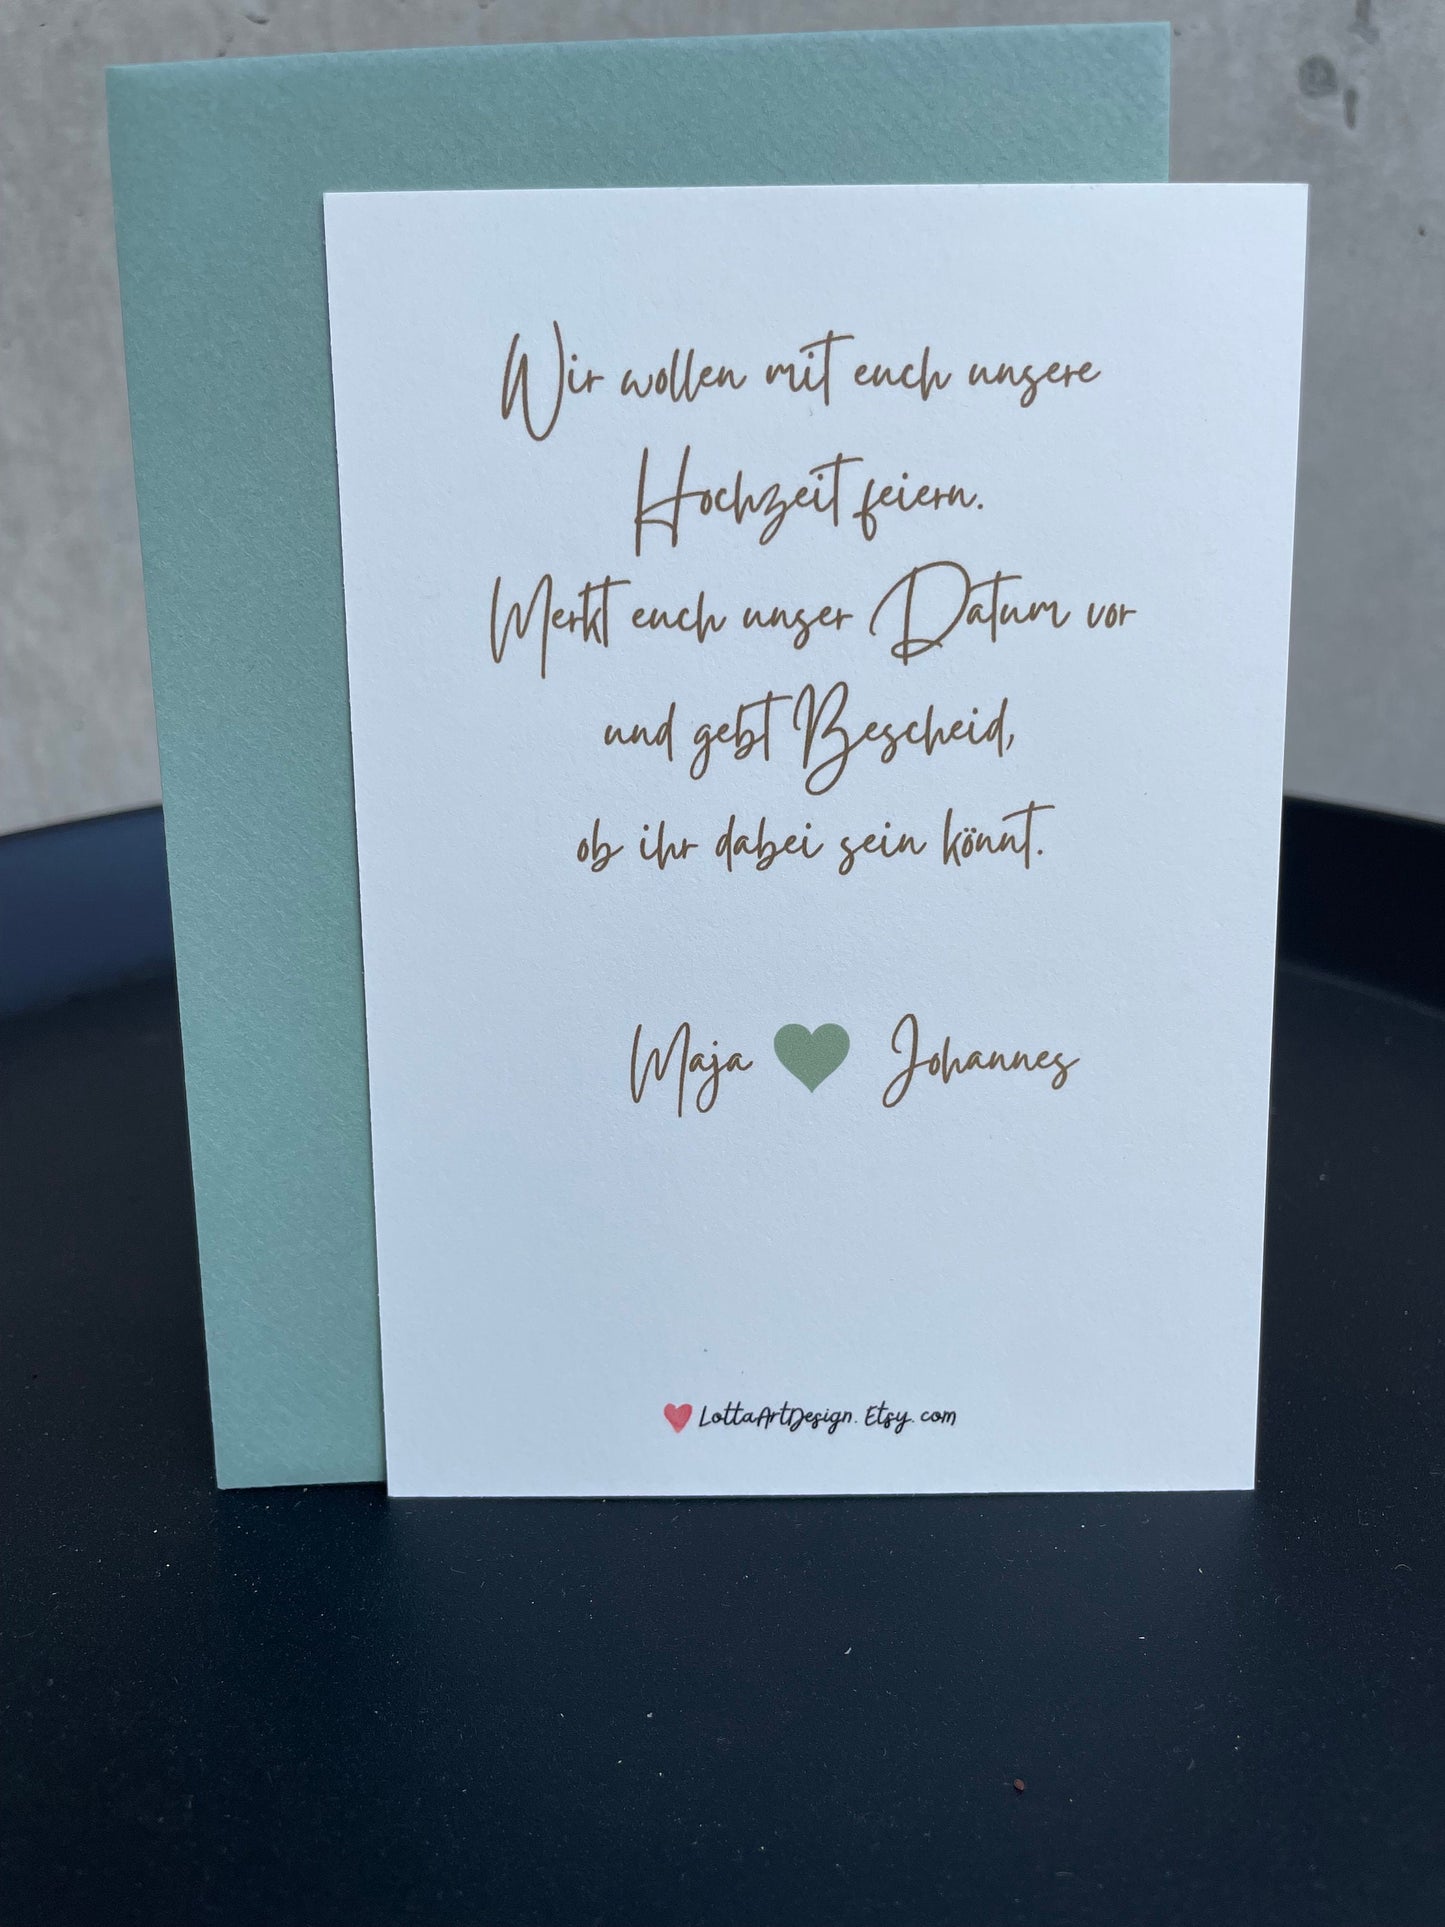 Wir wollen mit euch unsere
Hochzeit feiern.
Merkt euch unser Datum vor
und gebt Bescheid,
ob ihr dabei sein könnt.
Maja Johannes
LottaArtDesign.Etsy.com